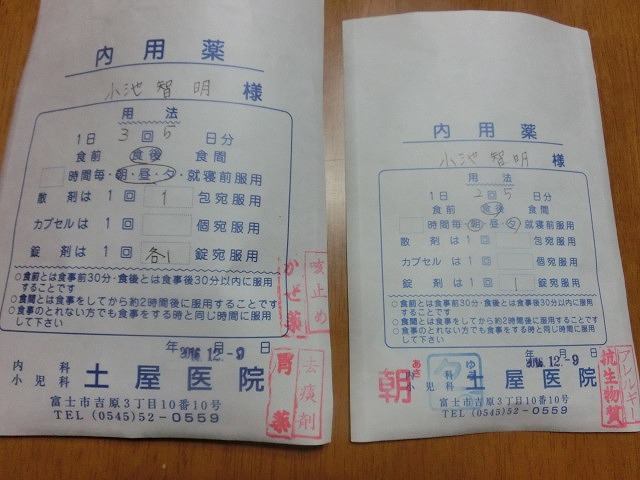 内用薬
小池智明 様
用法
1日 3回 5 日分
食前 食後 食間
時間毎・朝・昼・夕・就寝前服用
散剤は1回 1 包宛服用
カプセルは1回 個宛服用
錠剤は1回 各1 錠宛服用
○食前とは食事前30分・食後とは食事後30分以内に服用
することです
○食間とは食事をしてから約2時間後に服用することです
○食事のとれない方でも食事をする時と同じ時間に服用
して下さい
咳止め
かぜ薬
年 月 日
2016.12.-9
内科
小児科 土屋医院
富士市吉原3丁目10番10号
TEL (0545)52-0559
去痰剤
胃薬
内用薬
小池智明 様
用法
1日 2回 5 日分
食前 食後 食間
時間毎・朝・昼・夕・就寝前服用
散剤は1回 包宛服用
カプセルは1回 個宛服用
錠剤は1回 1 錠宛服用
○食前とは食事前30分・食後とは食事後30分以内に服用
することです
○食間とは食事をしてから約2時間後に服用することです
○食事のとれない方でも食事をする時と同じ時間に服用
して下さい
年 月 日
2016.12.-9
あさ
朝
ゆう
夕
内科
小児科 土屋医院
富士市吉原3丁目10番10号
TEL (0545)52-0559
アレルギー
抗生物質